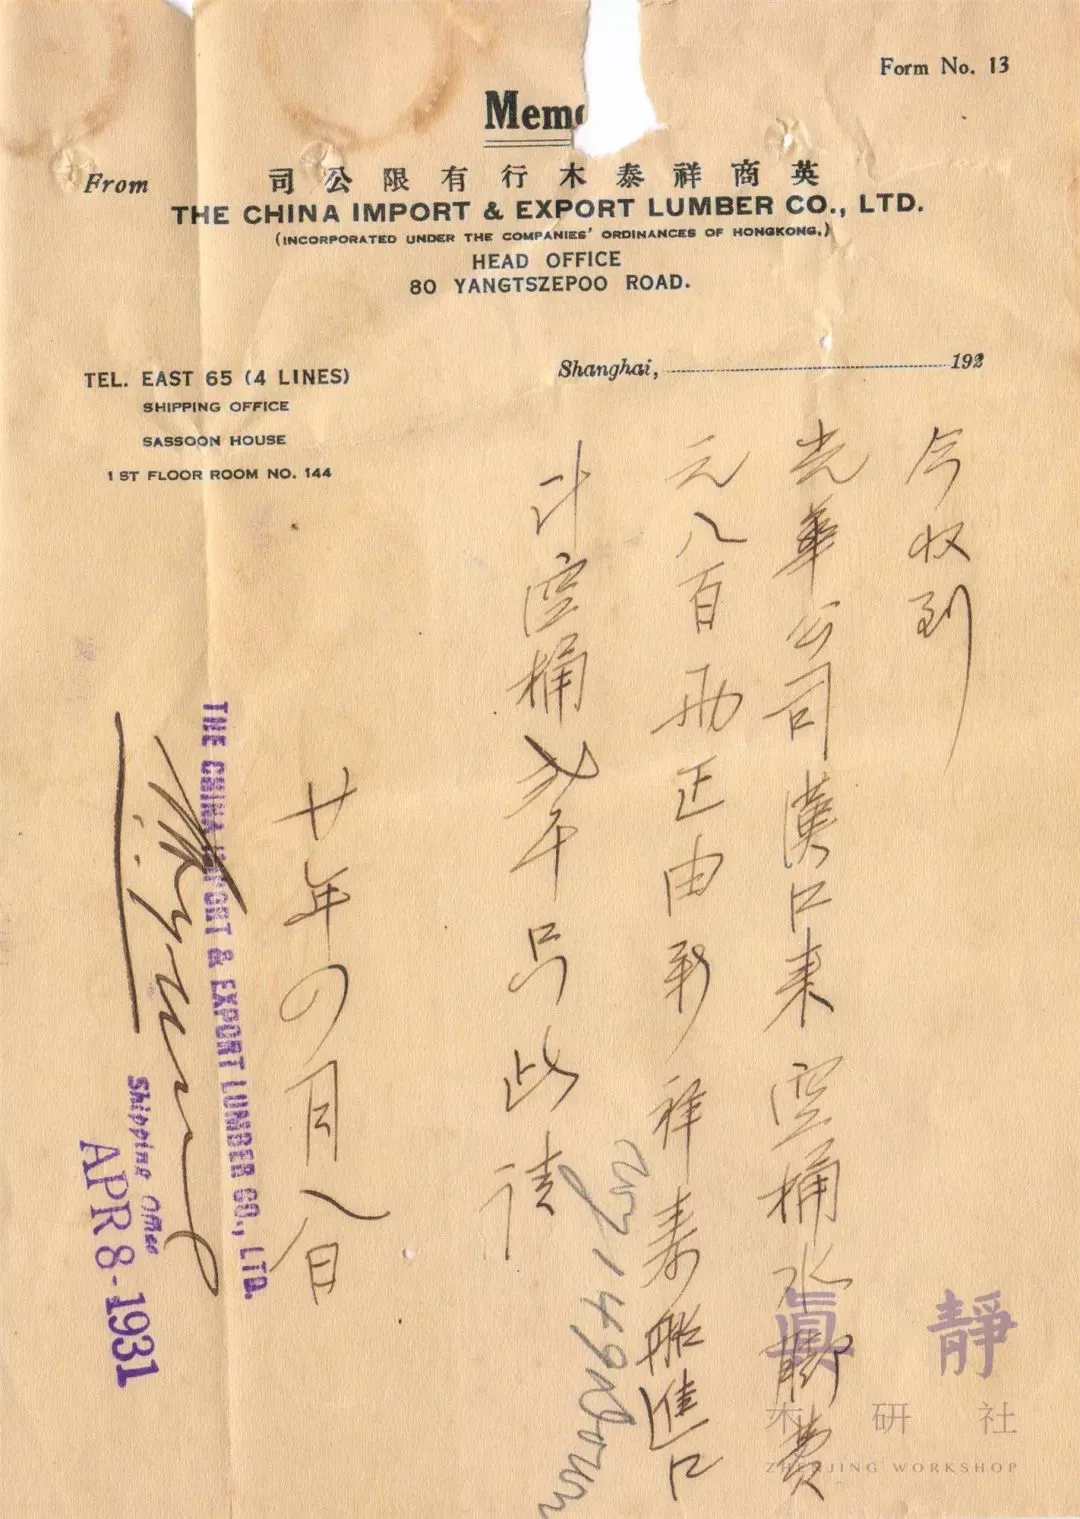 Form No. 13
Memo
From
司公限有行木泰祥商英
THE CHINA IMPORT & EXPORT LUMBER CO., LTD.
(INCORPORATED UNDER THE COMPANIES' ORDINANCES OF HONGKONG.)
HEAD OFFICE
80 YANGTSZEPOO ROAD.
Shanghai, 192
TEL. EAST 65 (4 LINES)
SHIPPING OFFICE
SASSOON HOUSE
1ST FLOOR ROOM NO. 144
今收到
光華公司漢口来空桶水脚費
元八百両正由新祥泰船進口
计空桶弍千只此请
廿年四月八日
THE CHINA IMPORT & EXPORT LUMBER CO., LTD.
Shipping Office
APR 8-1931
149
真靜
木研社
ZHENJING WORKSHOP